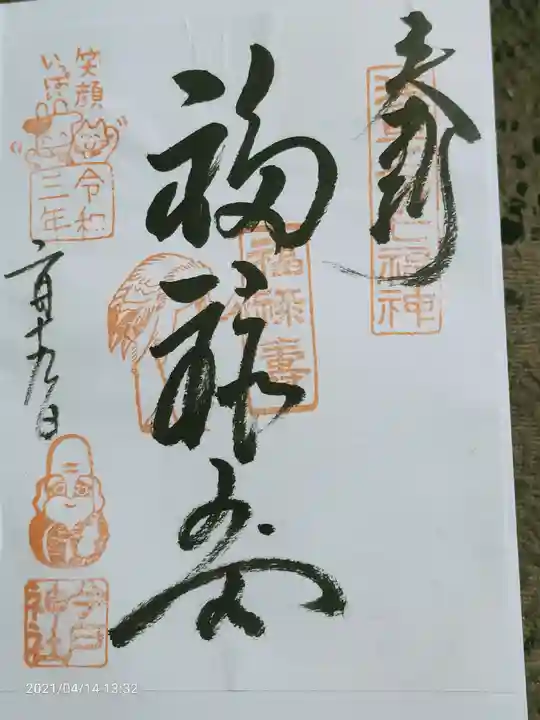 奉拝
福禄寿
福禄壽
笑顔
いっぱい
令和
三年
二月十九日
今戸
神社
2021/04/14 13:32